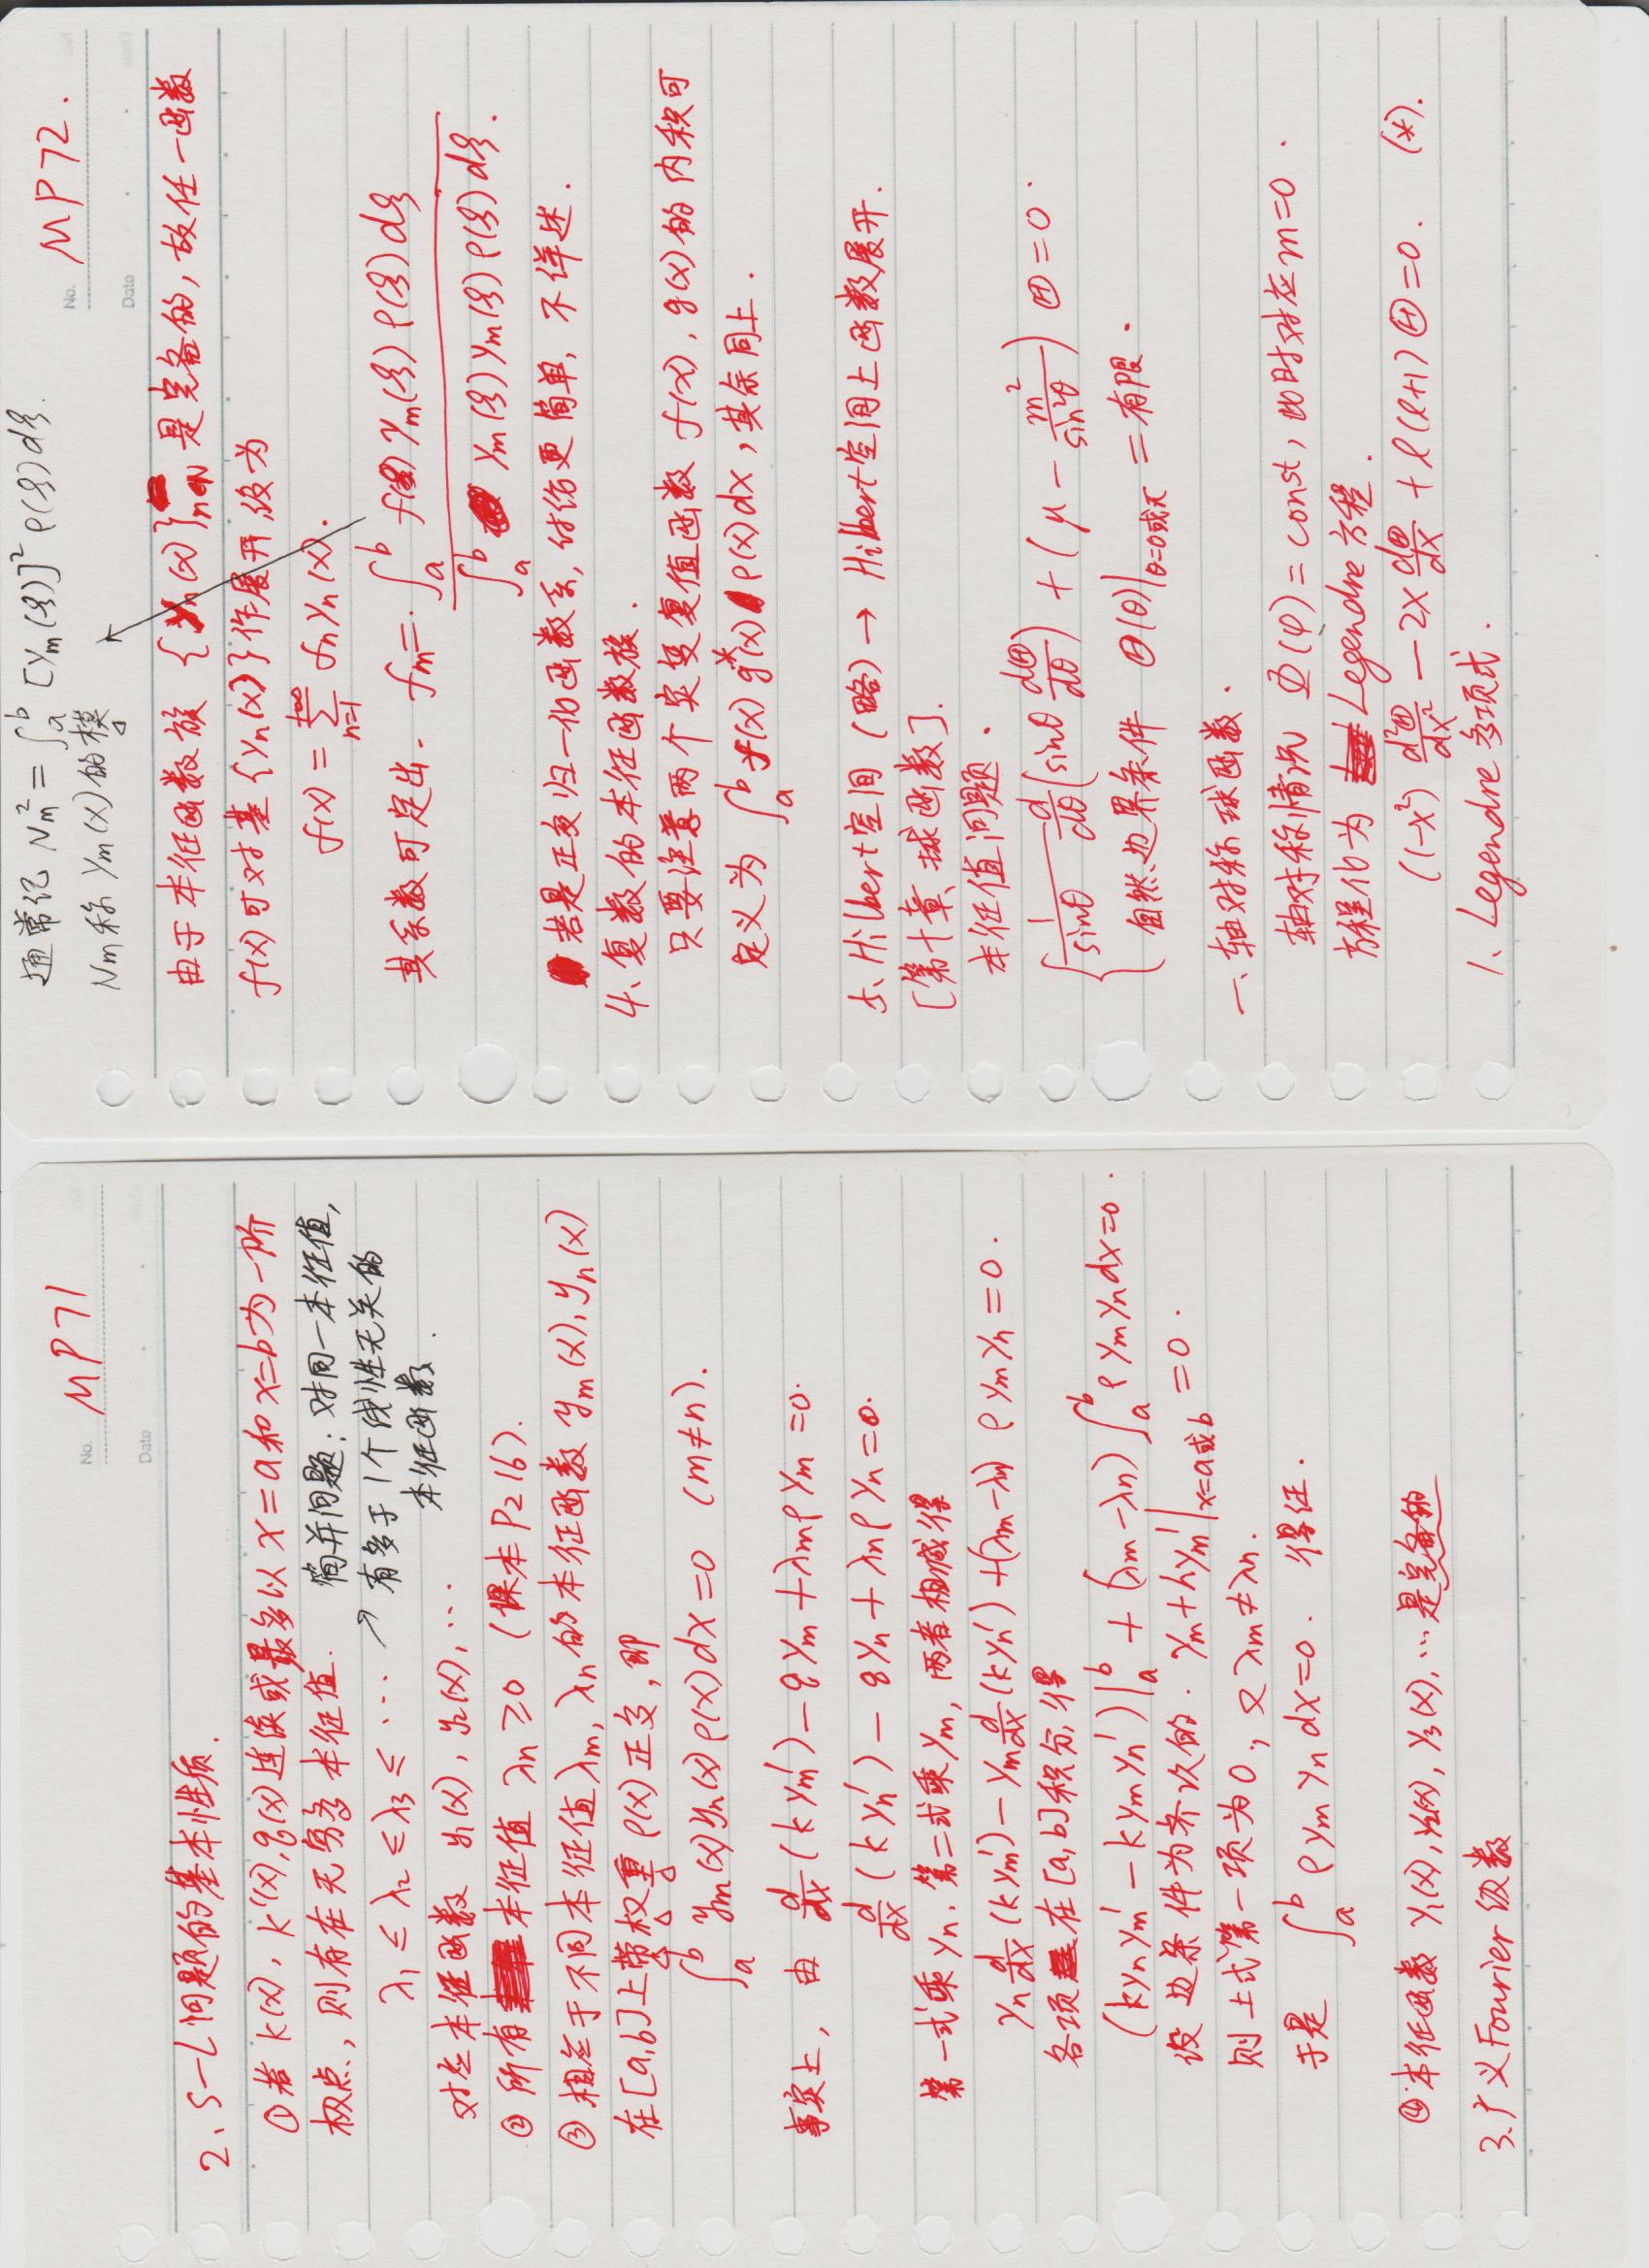 No. MP71
Date
2、S-L问题的基本性质.
①若 k(x), k'(x), q(x)连续或最多以 x=a和x=b为一阶
极点, 则存在无穷多本征值.
λ₁ ≤ λ₂ ≤ λ₃ ≤ ⋯ → 简并问题: 对同一本征值,
有多于1个线性无关的
本征函数.
对应本征函数 y₁(x), y₂(x), ⋯
② 所有本征值 λn ≥0 (课本P216).
③ 相应于不同本征值λm, λn的本征函数 ym(x), yn(x)
在[a,b]上带权重 ρ(x) 正交, 即
∫_a^b ym(x) yn(x) ρ(x) dx = 0 (m≠n).
事实上, 由 d/dx (k ym') − q ym + λm ρ ym = 0.
d/dx (k yn') − q yn + λn ρ yn = 0.
第一式乘 yn, 第二式乘 ym, 两者相减得
yn d/dx (k ym') − ym d/dx (k yn') + (λm−λn) ρ ym yn = 0.
各项在[a,b]积分, 得
(k yn ym' − k ym yn')|_a^b + (λm−λn) ∫_a^b ρ ym yn dx = 0.
设边条件为齐次的. ym + h ym'|_{x=a或b} = 0.
则上式第一项为0, 又 λm≠λn.
于是 ∫_a^b ρ ym yn dx = 0. 得证.
④ 本征函数 y₁(x), y₂(x), y₃(x), ⋯ 是完备的
3、广义Fourier级数
通常记 Nm² = ∫_a^b [ym(ξ)]² ρ(ξ) dξ.
Nm称 ym(x)的模
No. MP72.
Date
由于本征函数族 {yn(x)}_{n∈N} 是完备的, 故任一函数
f(x)可对基{yn(x)}作展开, 级为
f(x) = Σ_{n=1}^{+∞} fn yn(x).
其系数可定出. fm = ∫_a^b f(ξ) ym(ξ) ρ(ξ) dξ / ∫_a^b ym(ξ) ym(ξ) ρ(ξ) dξ.
若是正交归一的函数系, 讨论更简单, 不详述.
4、复数的本征函数族.
只要注意两个实变复值函数 f(x), g(x)的内积可
定义为 ∫_a^b f(x) g*(x) ρ(x) dx, 其余同上.
5、Hilbert空间 (略) → Hilbert空间上函数展开.
[第十章、球函数].
本征值问题.
{ 1/sinθ d/dθ (sinθ dΘ/dθ) + (μ − m²/sin²θ) Θ = 0.
自然边界条件 Θ(θ)|_{θ=0或π} = 有限.
一、轴对称球函数.
轴对称情况 Φ(φ) = const, 此时对应m=0.
方程化为 Legendre方程.
(1−x²) d²Θ/dx² − 2x dΘ/dx + l(l+1) Θ = 0. (*).
1、Legendre多项式.